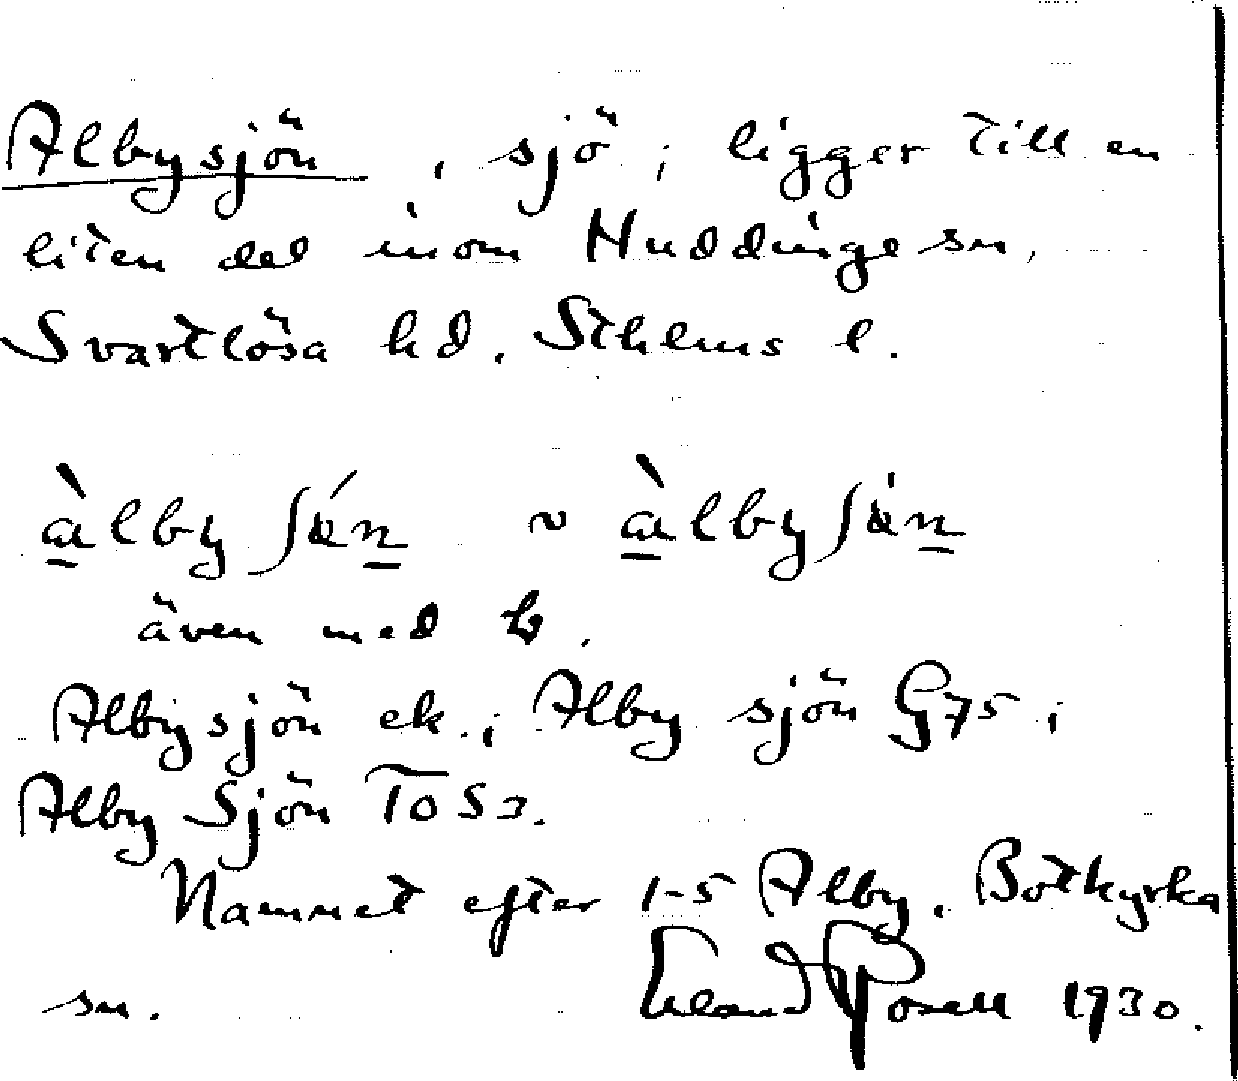 Albysjön, sjö; ligger till en
liten del inom Huddinge sn,
Svartlösa hd. Sthlms l.
även med b.
Albysjön ek.; Alby sjön G75;
Alby Sjön To S3.
Namnet efter 1-5 Alby. Botkyrka
sn. Erland Rosell 1930.